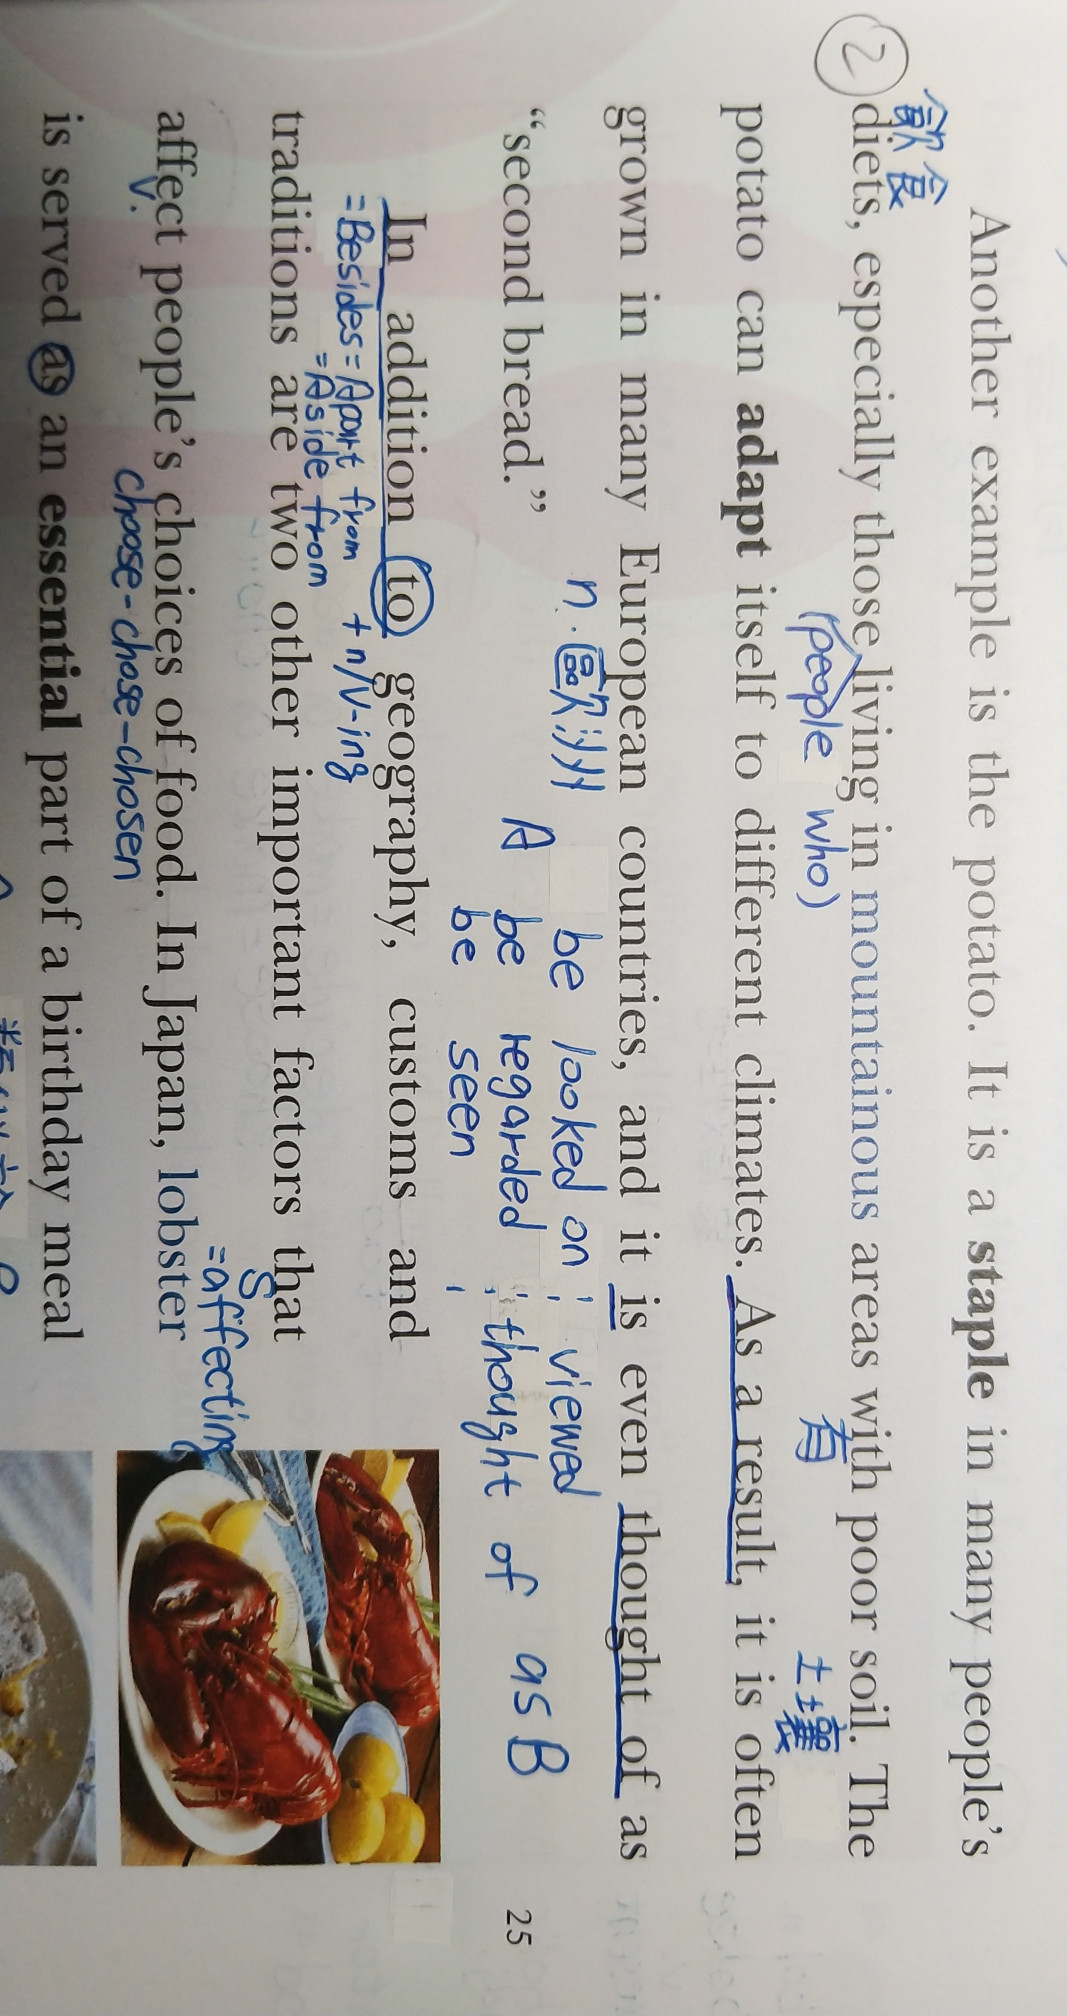 Another example is the potato. It is a staple in many people's
飲食
② diets, especially those living in mountainous areas with poor soil. The
(people who) 有 土壤
potato can adapt itself to different climates. As a result, it is often
grown in many European countries, and it is even thought of as
n. 歐洲
be looked on ; viewed
"second bread." A be regarded ; thought of as B
25
be seen ;
In addition to geography, customs and
=Besides=Apart from + n/V-ing
=Aside from
traditions are two other important factors that
S
=affecting
affect people's choices of food. In Japan, lobster
V. choose-chose-chosen
is served as an essential part of a birthday meal